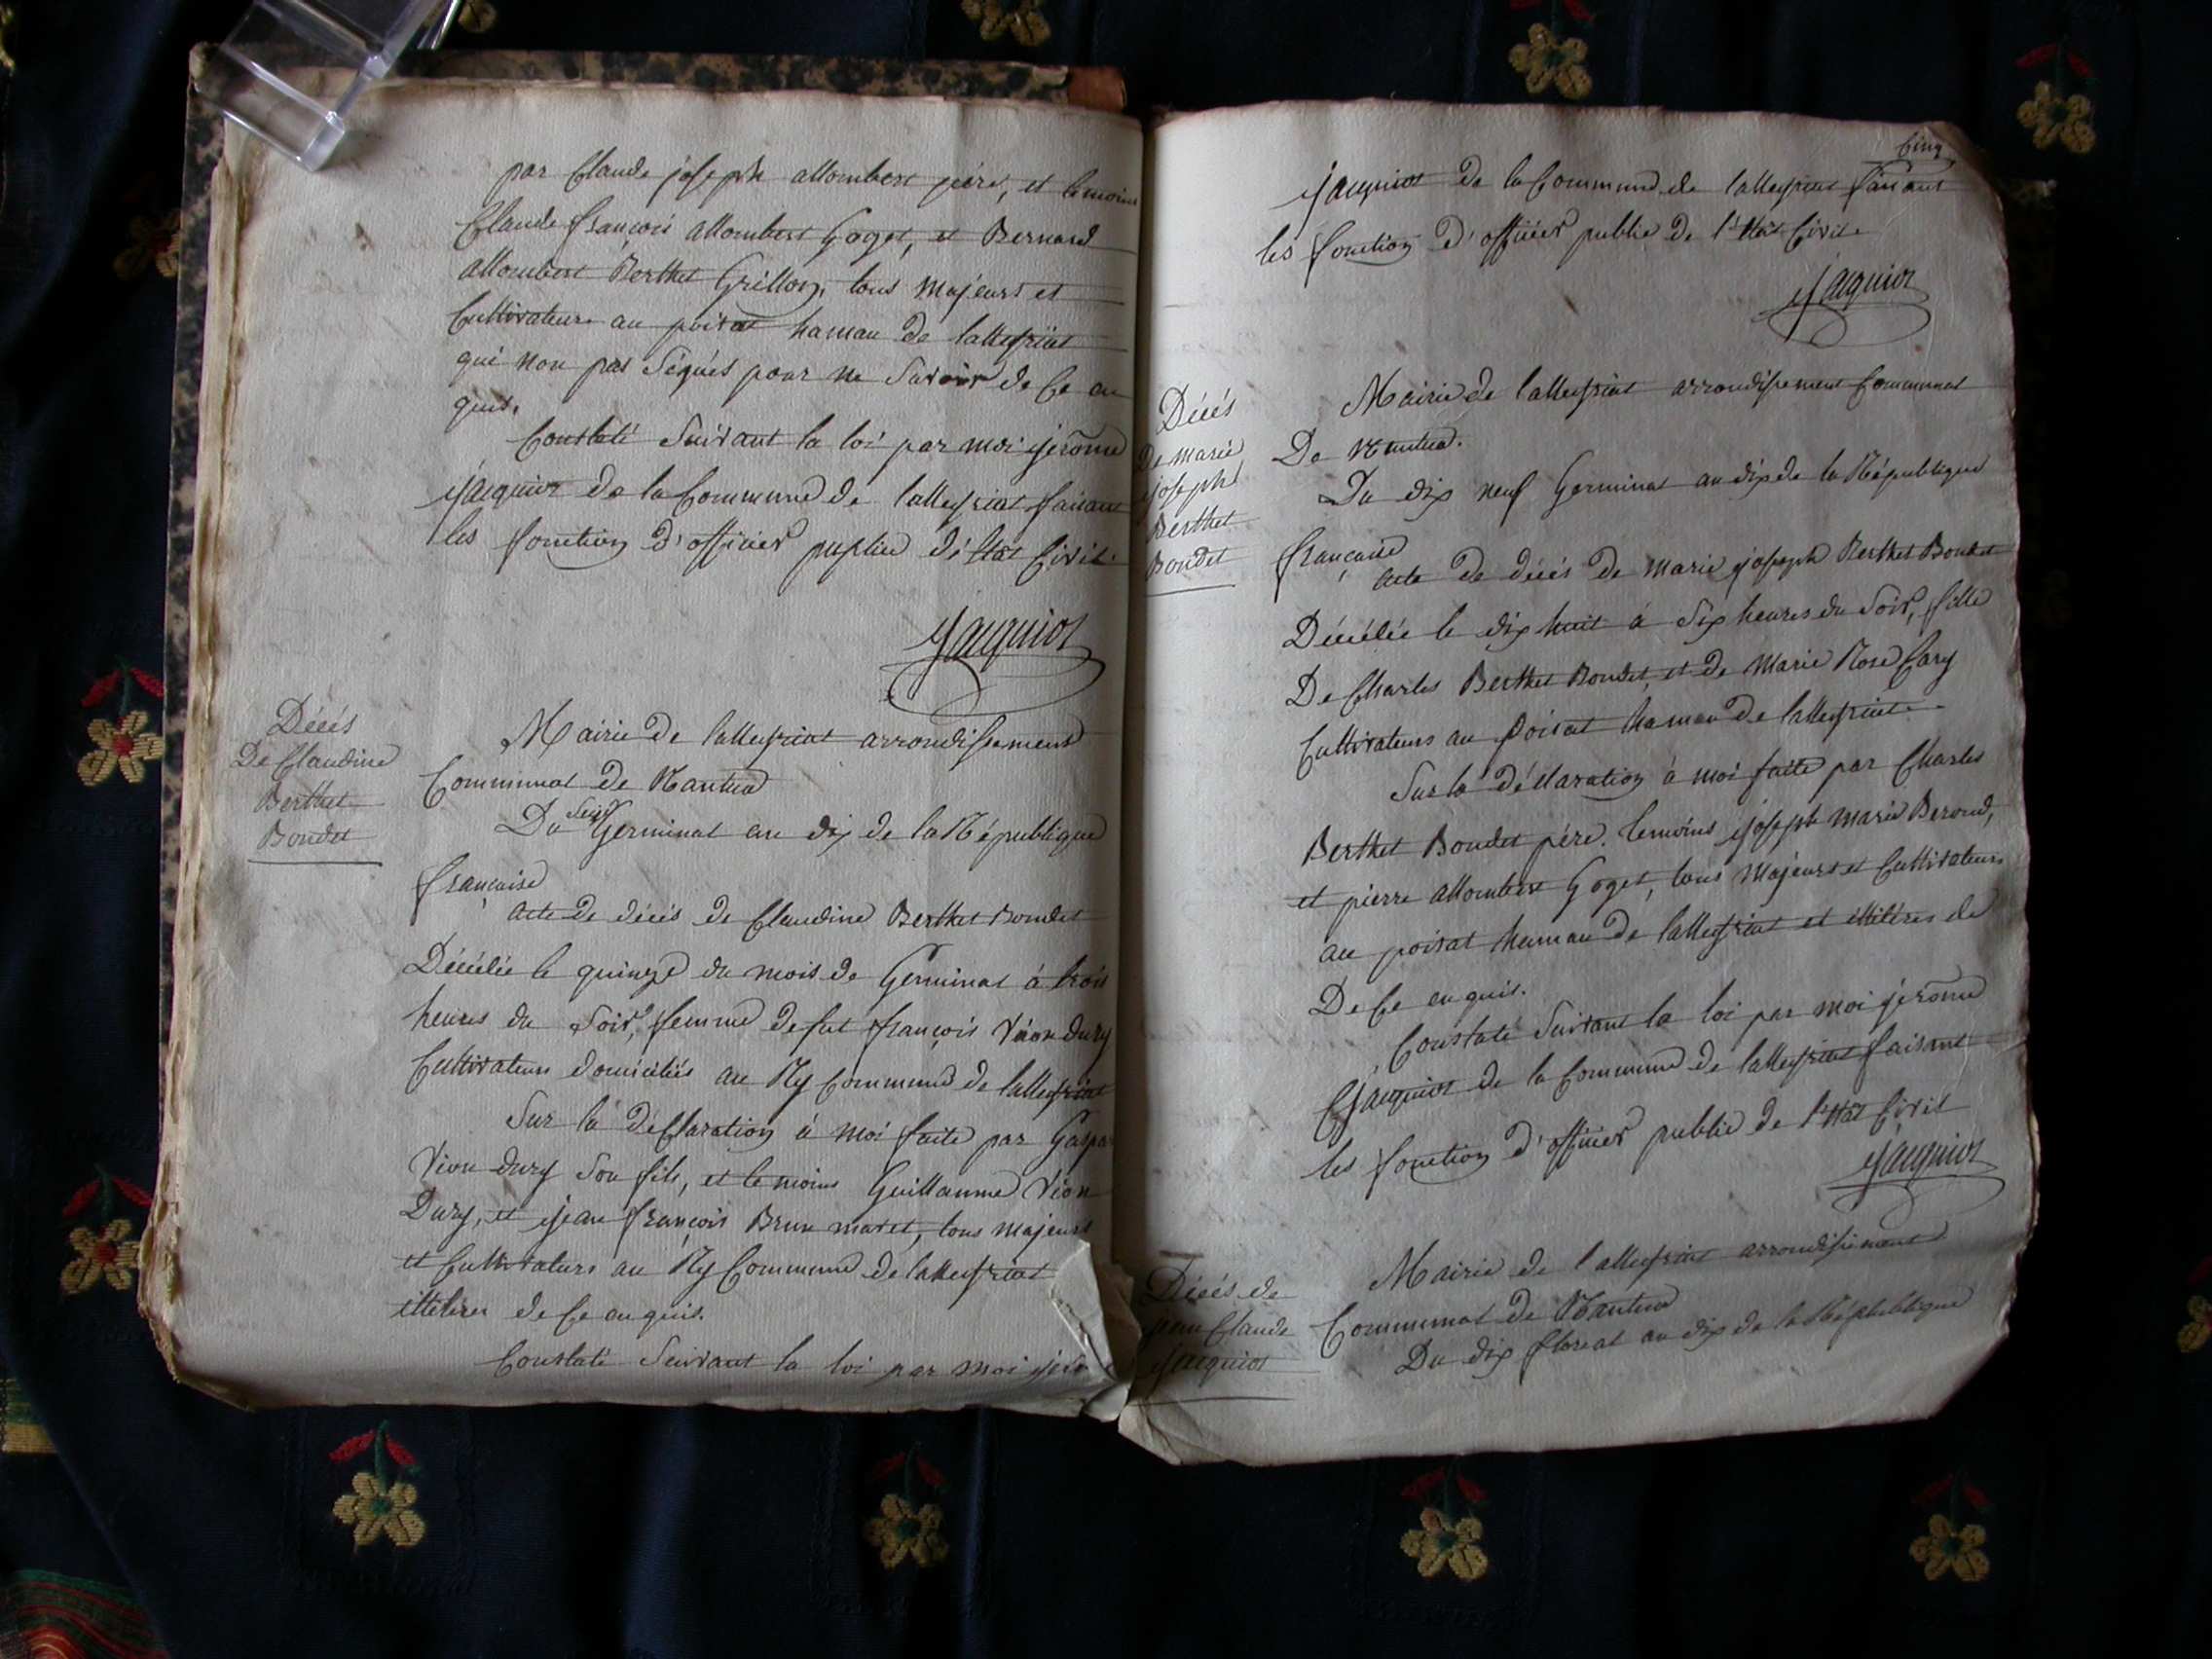 par Claude joseph allombert père, et temoins
Claude françois allombert Goget, et Bernard
allombert Berthet Grillon, tous majeurs et
Cultivateurs au poizat hamau de lalleyriat
qui non pas Signés pour ne Savoir de Ce en
quis.
Constaté Suivant la loi par moi jérôme
jacquiot de la Commune de lalleyriat faisant
les fonction d'officier puplic d'état Civil.
Jacquiot
Décés
De Claudine
Berthet
Bondet
Mairie de lalleyriat arrondissement
Communal de Nantua
Du Seize Germinal an dix de la République
française
acte de décés de Claudine Berthet Bondet
Décédée le quinze du mois de Germinal à trois
heures du Soir, femme de fut françois Vion dury
Cultivateurs domiciliés au Ny Commune de lalleyriat
Sur la déclaration à moi faite par Gaspar
Vion dury Son fils, et temoins Guillaume Vion
Dury, et jean françois Brun maret, tous majeurs
et Cultivateurs au Ny Commune de lalleyriat
illitéres de Ce enquis.
Constaté Suivant la loi par moi jérome
Cinq
jacquiot de la Commune de lalleyriat faisant
les fonction d'officier public de l'état Civil.
jacquiot
Décés
De marie
joseph
Berthet
Bondet
Mairie de lalleyriat arrondissement Communal
De Nantua.
Du dix neuf Germinal an dix de la République
française
acte de décés de marie joseph Berthet Bondet
Décédée le dix huit à Six heures du Soir, fille
De Charles Berthet Bondet, et de marie Rose Cary
Cultivateurs au Poizat hamau de lalleyriat.
Sur la déclaration à moi faite par Charles
Berthet Bondet père. temoins joseph marie Beroud,
et pierre allombert Goget, tous majeurs et Cultivateurs
au poizat hamau de lalleyriat et illitéres de
De Ce enquis.
Constaté Suivant la loi par moi jérôme
Jacquiot de la Commune de lalleyriat faisant
les fonction d'officier public de l'état Civil
jacquiot
Décés de
jean Claude
Jacquiot
Mairie de lalleyriat arrondissement
Communal de Nantua
Du dix floréal an dix de la République